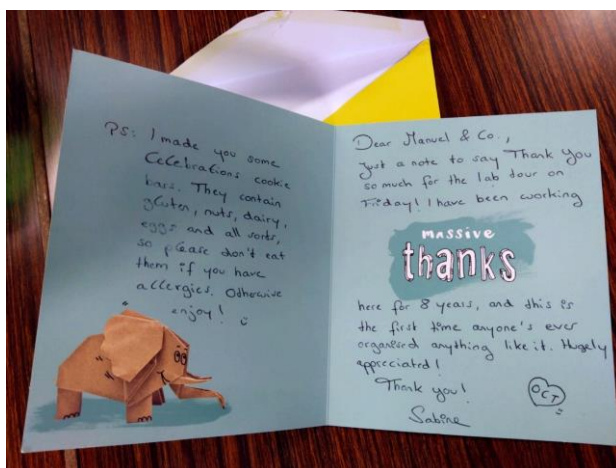 PS: I made you some
Celebrations cookie
bars. They contain
gluten, nuts, dairy,
eggs and all sorts,
so please don't eat
them if you have
allergies. Otherwise
enjoy!
Dear Manuel & Co.,
Just a note to say Thank You
so much for the lab tour on
Friday! I have been working
MASSIVE
thanks
here for 8 years, and this is
the first time anyone's ever
organised anything like it. Hugely
appreciated!
Thank you!
OCT
Sabine